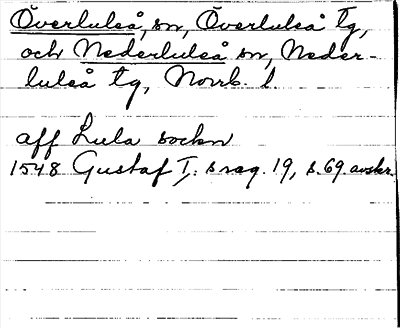 Överluleå, sn, Överluleå tg,
och Nederluleå sn, Neder-
luleå tg, Norrb. l.
aff Lula sockn
1548 Gustaf I: s reg. 19, s. 69. avskr.